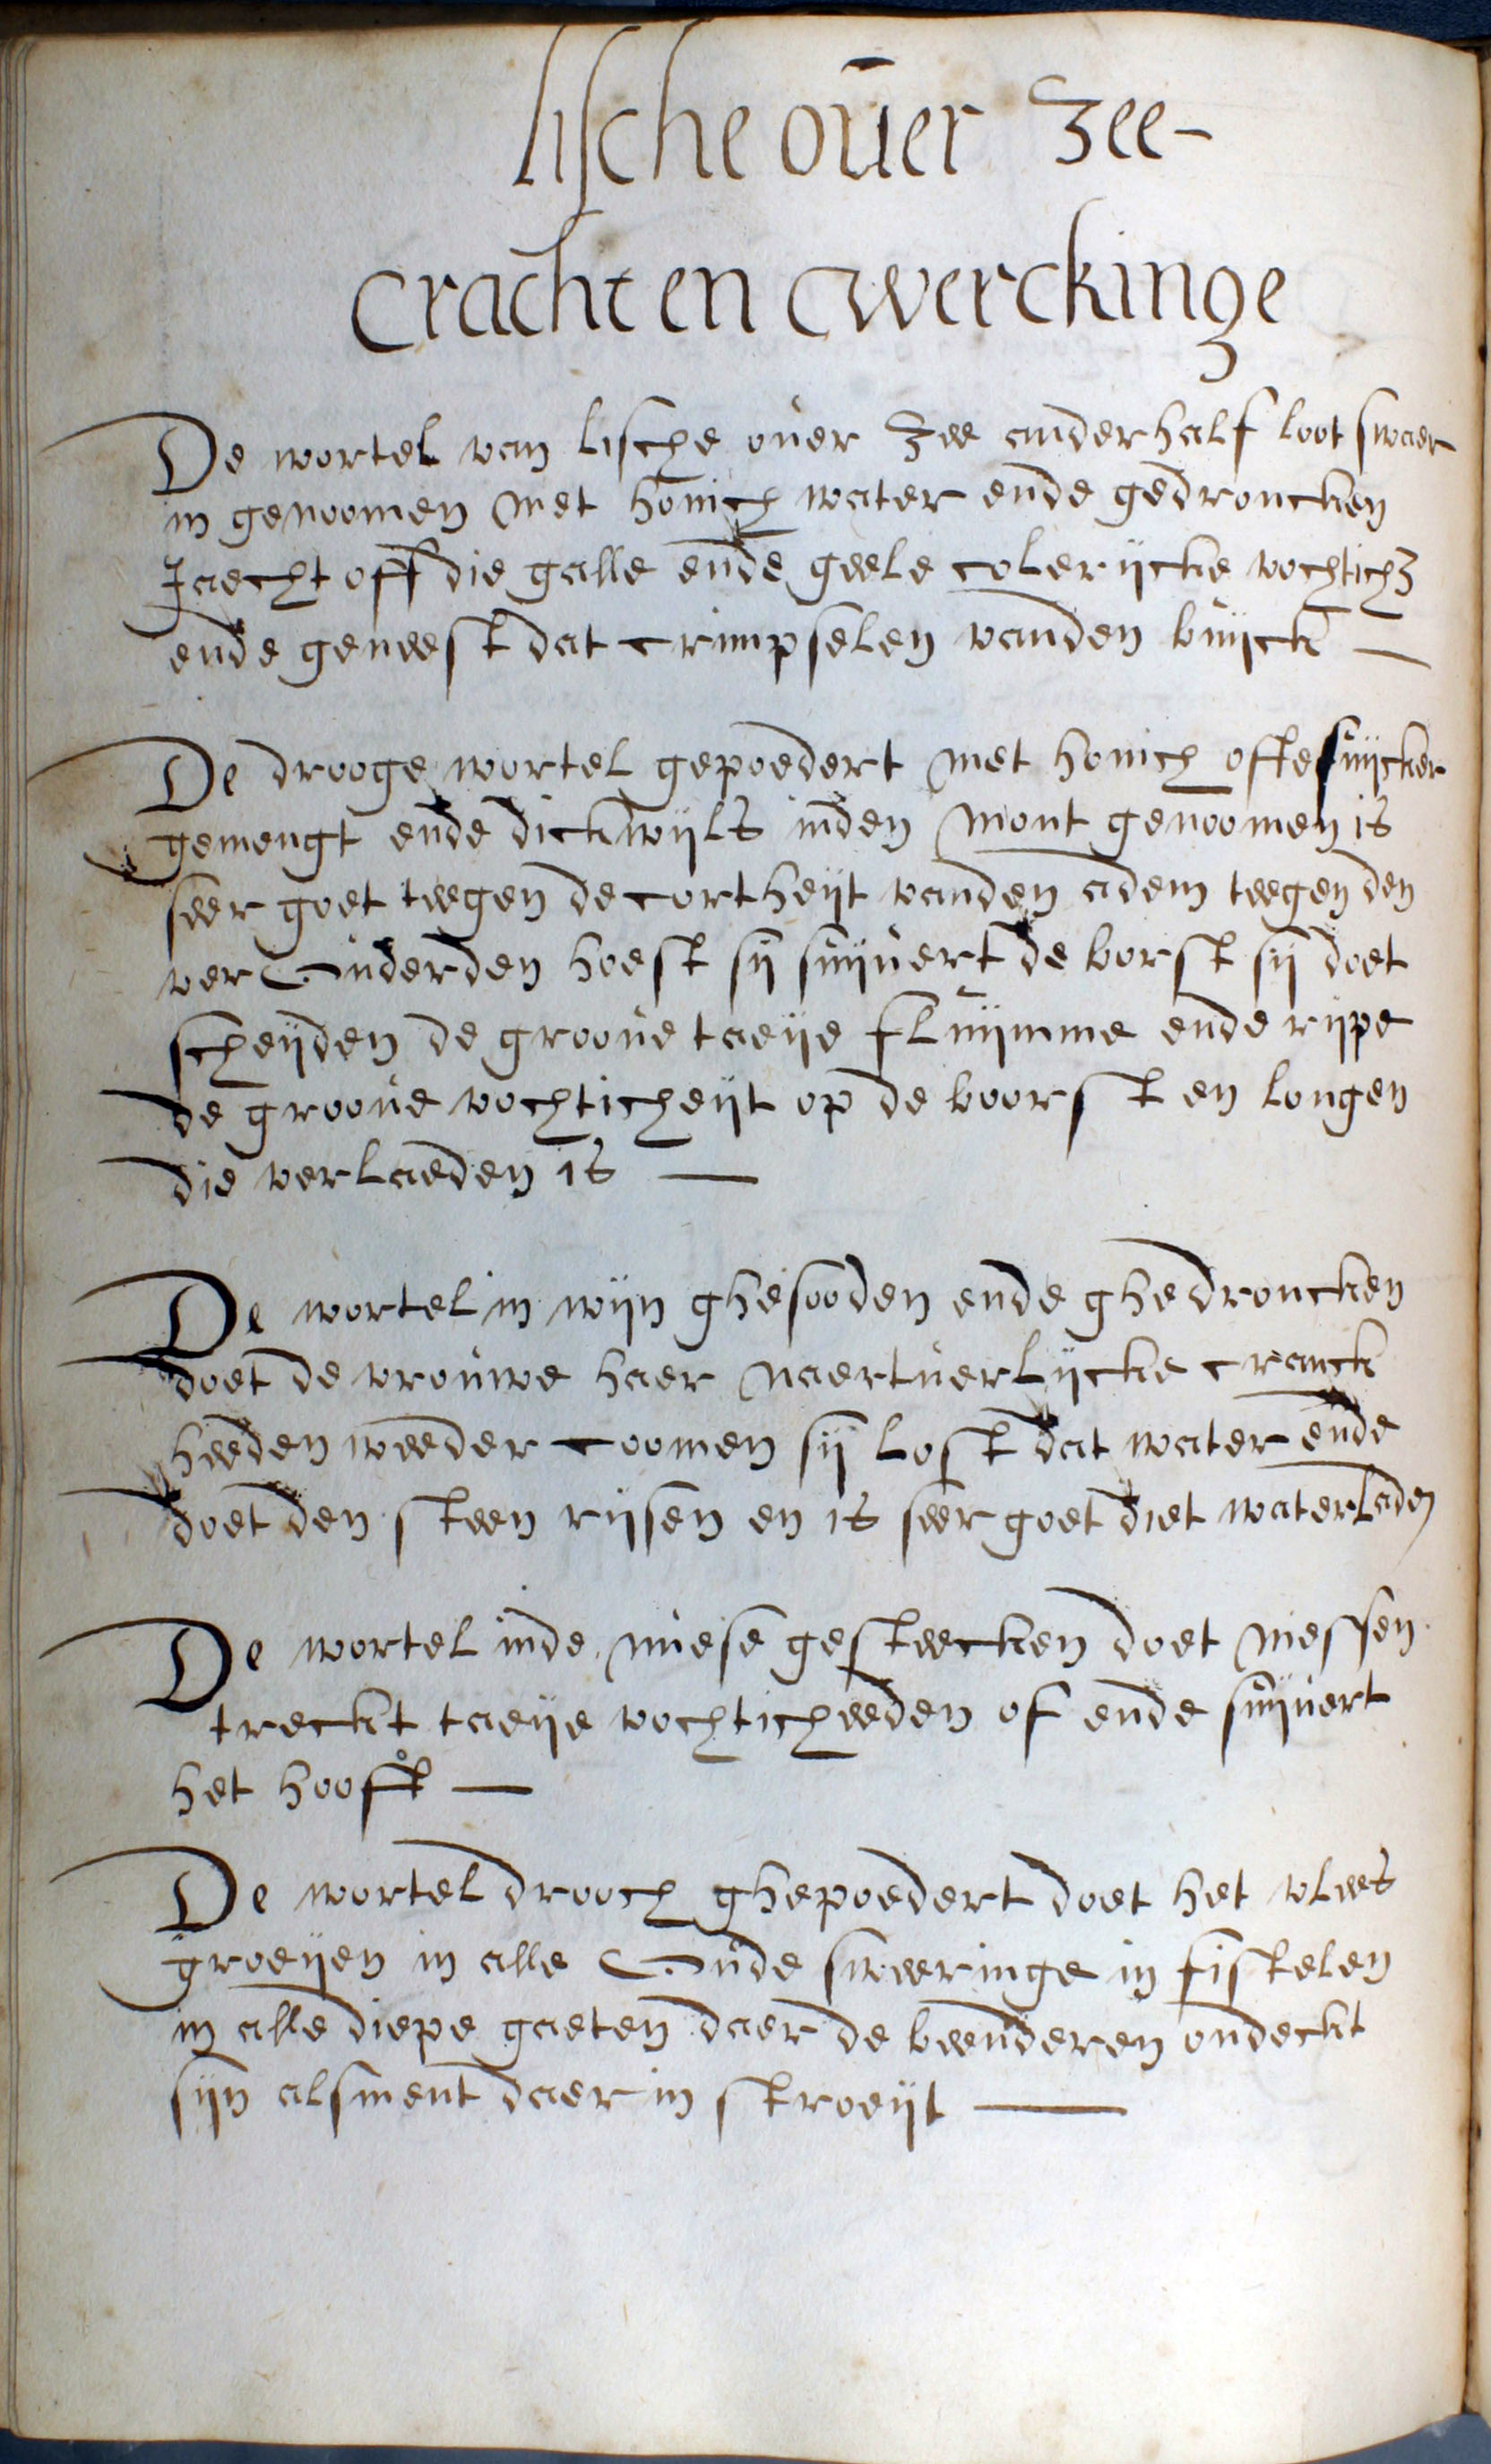 lische ouer zee-
cracht en werckinge
De wortel van lische ouer zee anderhalf loot swaer
in genoomen met honich water ende gedroncken
Jaecht off die galle ende geele colerijcke vochtich
ende geneest dat crimpselen vanden buijck —
De drooge wortel gepoedert met honich ofte suijcker
gemengt ende dickwijls inden mont genoomen is
seer goet teegen de cortheijt vanden adem teegen den
verouderden hoest sij suijuert de borst sij doet
scheijden de grooue taeije fluijmme ende rijpe
de grooue vochticheijt op de boorst en longen
die verlaeden is —
De wortel in wijn ghesooden ende ghedroncken
doet de vrouwe haer naertuerlijcke cranck
heeden weeder coomen sij lost dat water ende
doet den steen rijsen en is seer goet diet waterladen
De wortel inde niese gesteecken doet niessen
treckt taeije vochticheeden of ende suijuert
het hooft —
De wortel drooch ghepoedert doet het vlees
groeijen in alle oude sweeringe in fistelen
in alle diepe gaeten daer de beenderen ondeckt
sijn alsment daer in stroeijt —